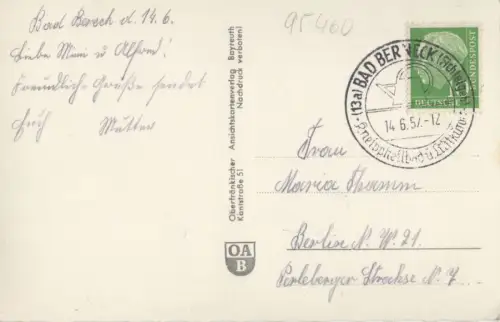 95460
Bad Berneck d. 14.6.
Liebe Mimi u. Alfred!
Freundliche Grüße sendet
Euch Mutter
Oberfränkischer Ansichtskartenverlag Bayreuth
Kantstraße 51 Nachdruck verboten!
OA
B
(13a) BAD BERNECK
14.6.57.-12
Kneippheilbad u. Luftkurort
DEUTSCHE BUNDESPOST
Frau
Maria Thamm
Berlin N. W. 21.
Perleberger Strasse N. 7